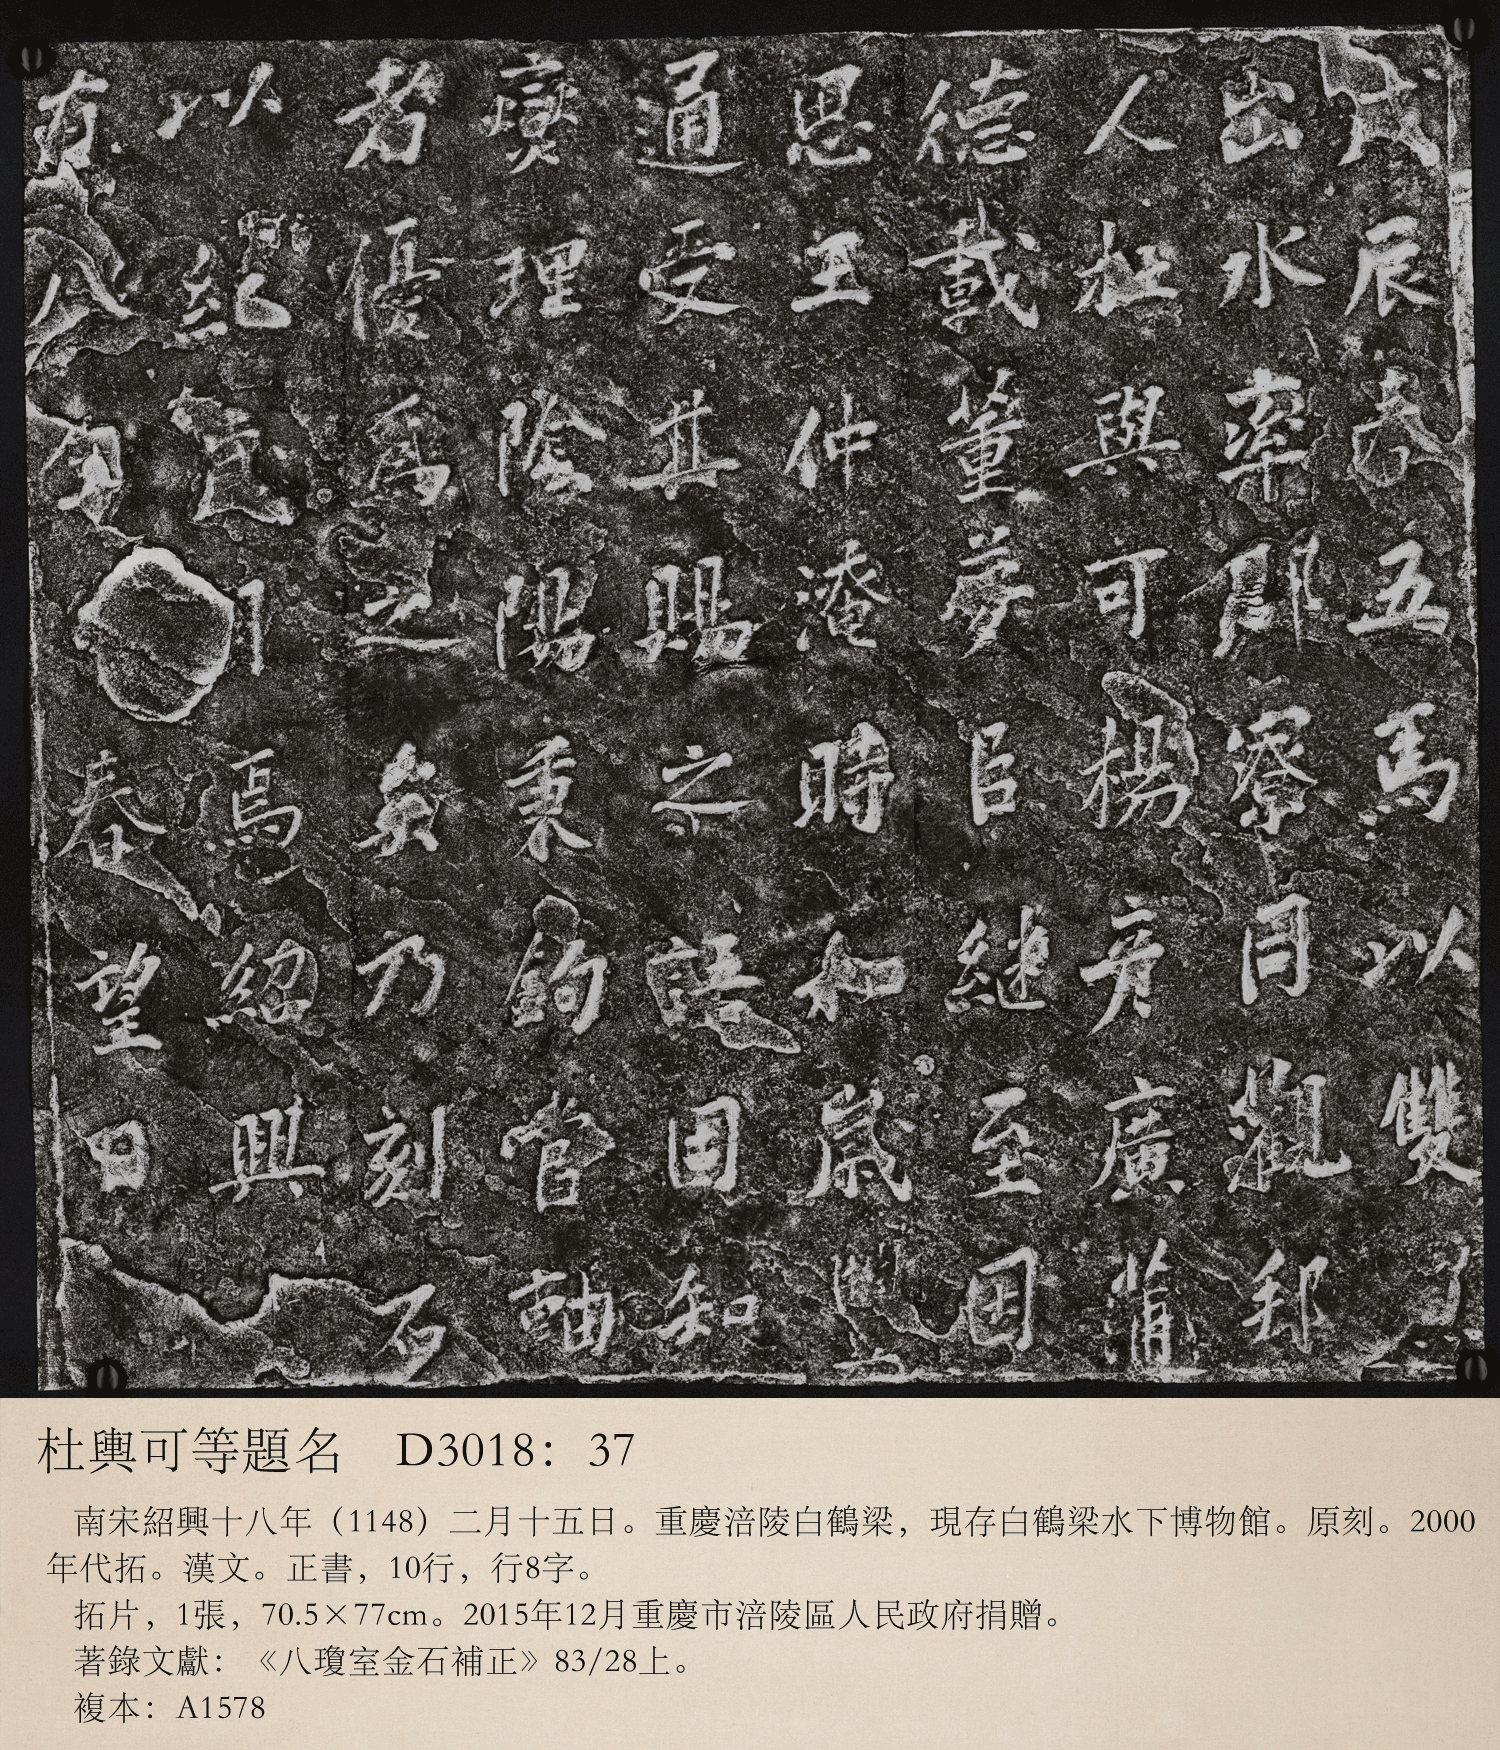 戊辰春五馬以雙
出水率郡寮同觀郄
人杜與可楊彥廣蒲
德載董夢臣繼至因
思王仲淹時和歲豐
通受其賜之語因知
爕理陰陽秉鈞當軸
者優爲之矣乃刻石
以紀焉紹興
有八春望日
杜輿可等題名 D3018：37
南宋紹興十八年（1148）二月十五日。重慶涪陵白鶴梁，現存白鶴梁水下博物館。原刻。2000
年代拓。漢文。正書，10行，行8字。
拓片，1張，70.5×77cm。2015年12月重慶市涪陵區人民政府捐贈。
著錄文獻：《八瓊室金石補正》83/28上。
複本：A1578